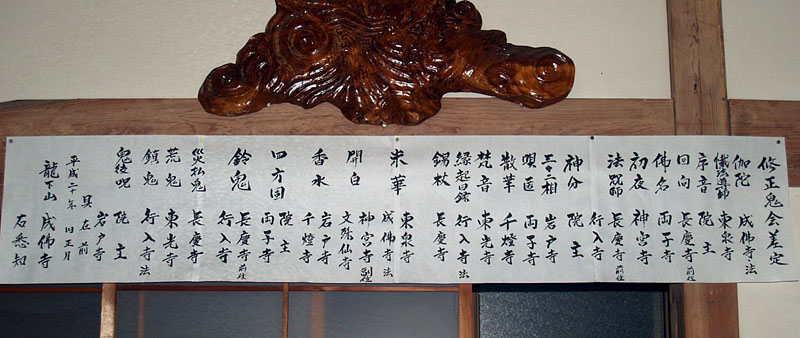 修正鬼会差定
伽陀 成佛寺 法
懺法導師 東泉寺
序音 院主
回向 長慶寺 前住
佛名 両子寺
初夜 神宮寺
法咒師 長慶寺 前住
行入寺
神分 院主
三十二相 岩戸寺
唄匿 両子寺
散華 千燈寺
梵音 行入寺 法
縁起目録 成佛寺
錫杖 長慶寺
米華 東泉寺
成佛寺 法
開白 神宮寺 副住
文殊仙寺
香水 岩戸寺
千燈寺
四方固 院主
両子寺
鈴鬼 長慶寺 前住
行入寺
災払鬼 長慶寺
荒鬼 東光寺
鎮鬼 行入寺 法
鬼後呪 院主
岩戸寺
具在前
平成二十年 旧正月
龍下山 成佛寺
右悉知